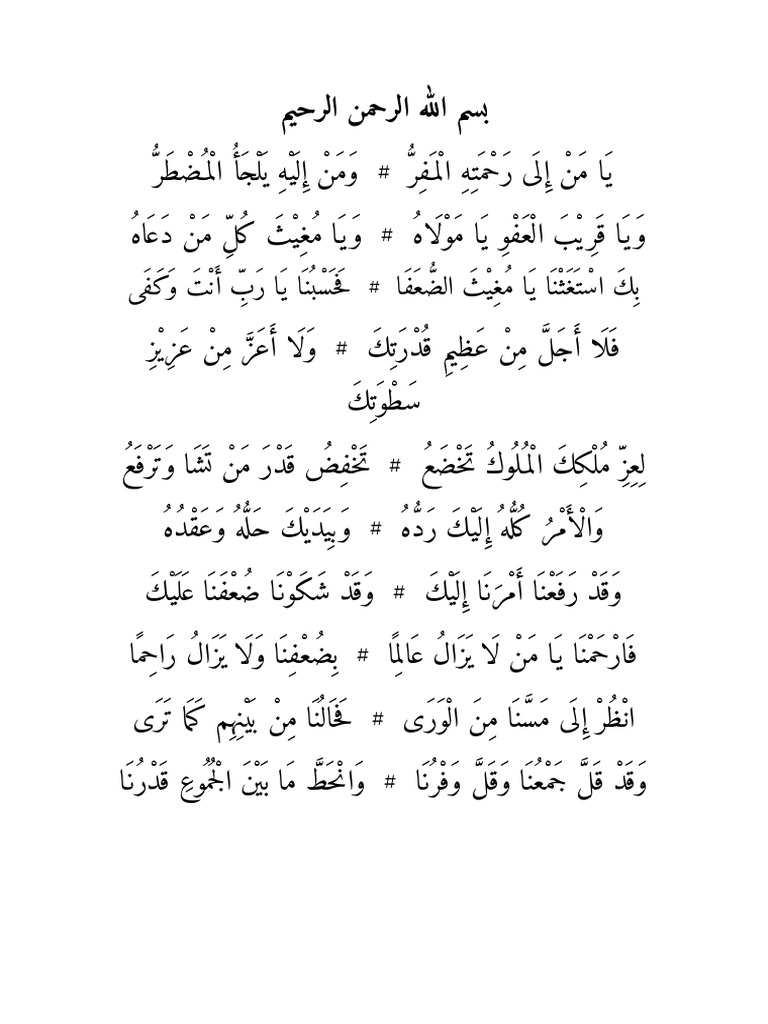 بسم الله الرحمن الرحيم
يَا مَنْ إِلَى رَحْمَتِهِ الْمَفِرُّ # وَمَنْ إِلَيْهِ يَلْجَأُ الْمُضْطَرُّ
وَيَا قَرِيْبَ الْعَفْوِ يَا مَوْلَاهُ # وَيَا مُغِيْثَ كُلِّ مَنْ دَعَاهُ
بِكَ اسْتَغَثْنَا يَا مُغِيْثَ الضُّعَفَا # فَحَسْبُنَا يَا رَبِّ أَنْتَ وَكَفَى
فَلَا أَجَلَّ مِنْ عَظِيمِ قُدْرَتِكَ # وَلَا أَعَزَّ مِنْ عَزِيْزِ
سَطْوَتِكَ
لِعِزِّ مُلْكِكَ الْمُلُوكُ تَخْضَعُ # تَخْفِضُ قَدْرَ مَنْ تَشَا وَتَرْفَعُ
وَالْأَمْرُ كُلُّهُ إِلَيْكَ رَدُّهُ # وَبِيَدَيْكَ حَلُّهُ وَعَقْدُهُ
وَقَدْ رَفَعْنَا أَمْرَنَا إِلَيْكَ # وَقَدْ شَكَوْنَا ضُعْفَنَا عَلَيْكَ
فَارْحَمْنَا يَا مَنْ لَا يَزَالُ عَالِمًا # بِضُعْفِنَا وَلَا يَزَالُ رَاحِمًا
انْظُرْ إِلَى مَسَّنَا مِنَ الْوَرَى # فَحَالُنَا مِنْ بَيْنِهِم كَمَا تَرَى
وَقَدْ قَلَّ جَمْعُنَا وَقَلَّ وَفْرُنَا # وَانْحَطَّ مَا بَيْنَ الْجُمُوعِ قَدْرُنَا